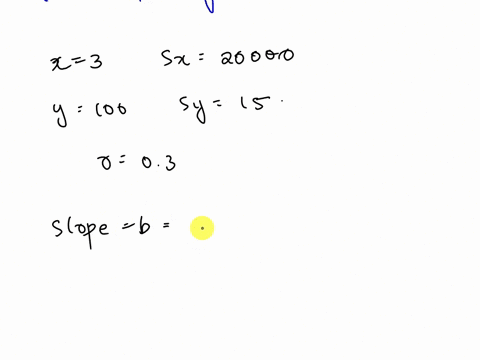 x = 3 Sx = 20000
y = 100 Sy = 15.
r = 0.3
Slope = b =